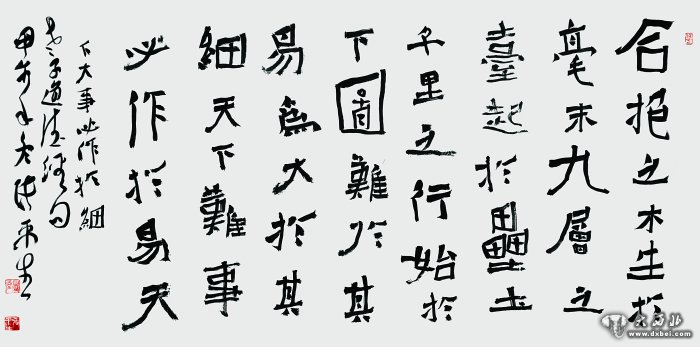 合抱之木生於
毫末九層之
臺起於壘土
千里之行始於
下圖難於其
易為大於其
細天下難事
必作於易天
下大事必作於細
老子道德經句
甲午年冬
大西北
www.dxbei.com